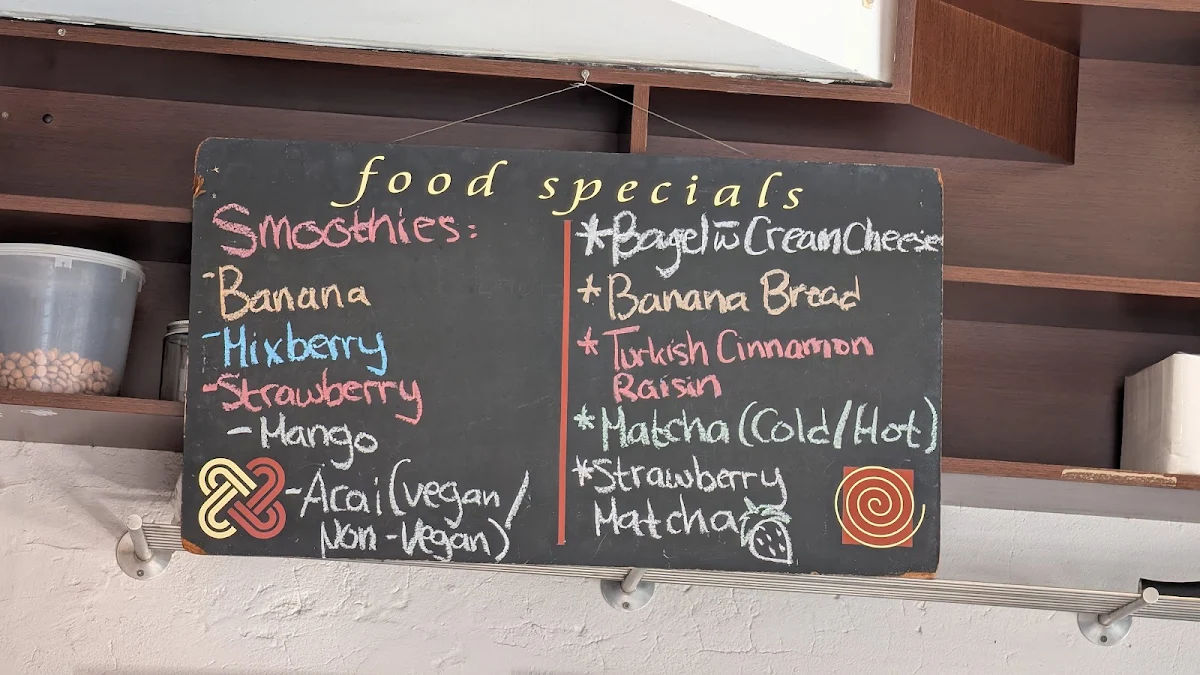 food specials
Smoothies:
-Banana
-Mixberry
-Strawberry
-Mango
-Acai (vegan/
Non-Vegan)
*Bagel w̅ Cream Cheese
*Banana Bread
*Turkish Cinnamon
Raisin
*Matcha (Cold/Hot)
*Strawberry
Matcha